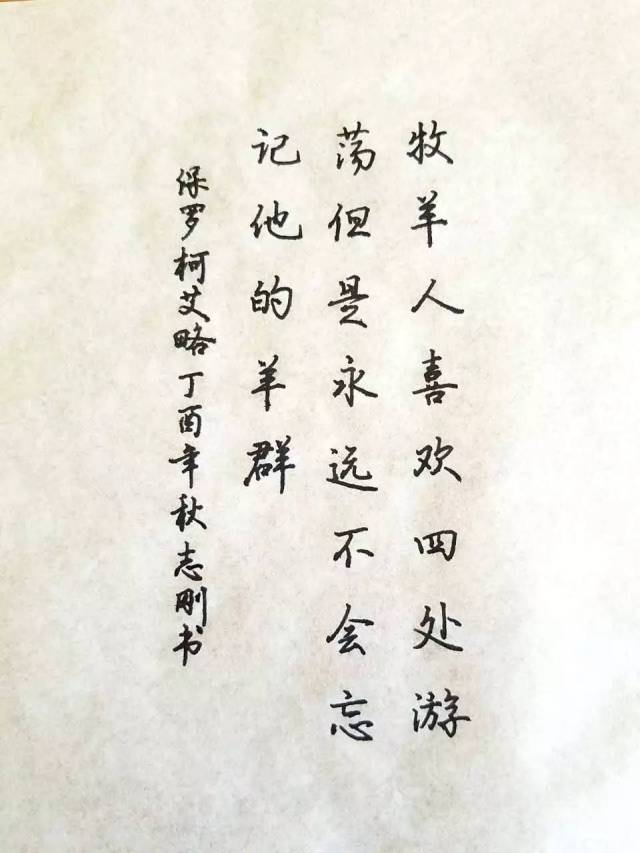 牧羊人喜欢四处游
荡但是永远不会忘
记他的羊群
保罗柯艾略丁酉年秋志刚书